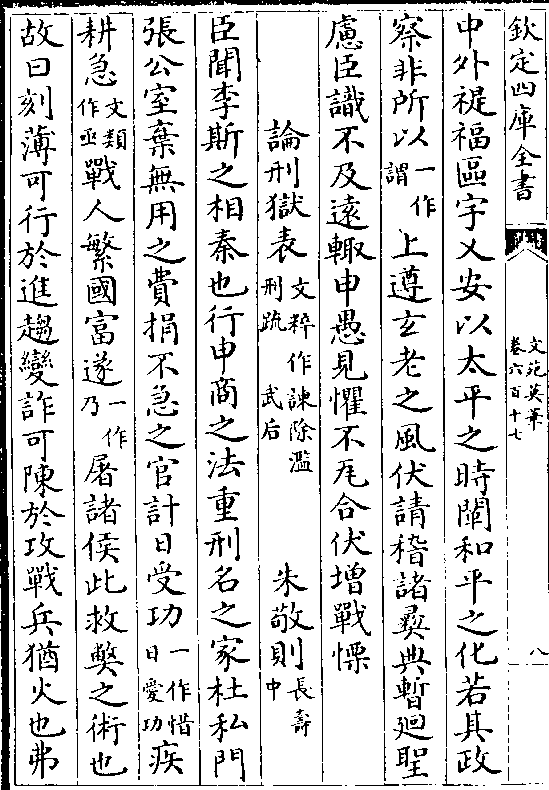 欽定四庫全書
文苑英華
卷六百十七
八
中外禔福區宇乂安以太平之時闡和平之化若其政
察非所以一作謂上遵玄老之風伏請稽諸彛典暫廻聖
慮臣識不及遠輙申愚見懼不允合伏增戰慄
論刑獄表文粹作諫除濫刑疏 武后 朱敬則長壽中
臣聞李斯之相秦也行申商之法重刑名之家杜私門
張公室棄無用之費捐不急之官計日受功一作惜日愛功疾
耕急文類作亟戰人繁國富遂一作乃屠諸侯此救獘之術也
故曰刻薄可行於進趨變詐可陳於攻戰兵猶火也弗